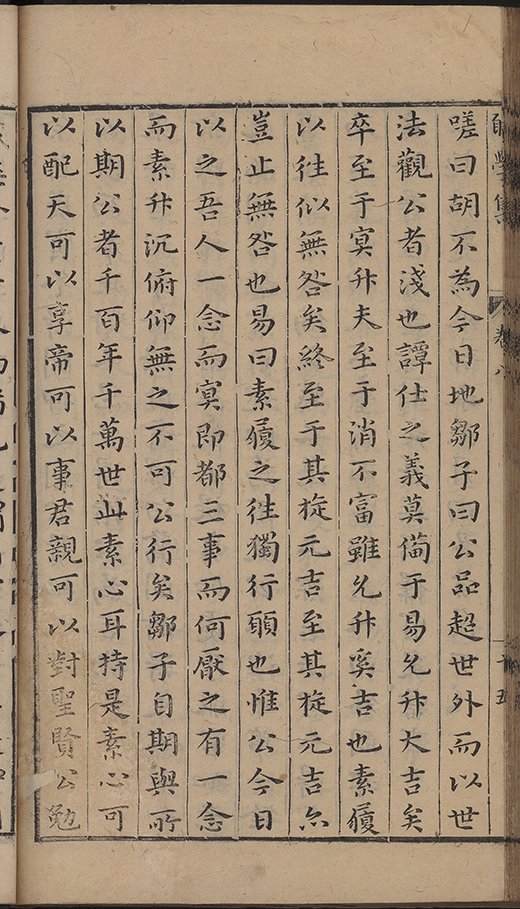 嗟曰胡不為今日地鄒子曰公品超世外而以世
法觀公者淺也譚仕之義莫俻于易允升大吉矣
卒至于冥升夫至于消不富雖允升奚吉也素履
以徃似無咎矣終至于其旋元吉至其旋元吉亦
豈止無咎也易曰素履之徃獨行願也惟公今日
以之吾人一念而冥即都三事而何厭之有一念
而素升沉俯仰無之不可公行矣鄒子自期與所
以期公者千百年千萬世此素心耳持是素心可
以配天可以享帝可以事君親可以對聖賢公勉